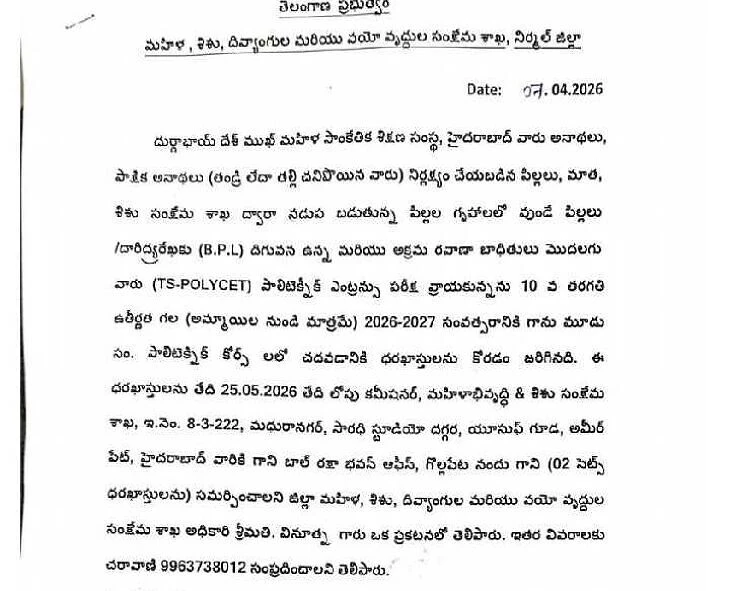 తెలంగాణ ప్రభుత్వం
మహిళ , శిశు, దివ్యాంగుల మరియు వయో వృద్దుల సంక్షేమ శాఖ, నిర్మల్ జిల్లా
Date: 07.04.2026
దుర్గాభాయ్ దేశ్ ముఖ్ మహిళ సాంకేతిక శిక్షణ సంస్థ, హైదరాబాద్ వారు అనాథలు,
పాక్షిక అనాథలు (తండ్రి లేదా తల్లి చనిపొయిన వారు) నిర్లక్ష్యం చేయబడిన పిల్లలు, మాత,
శిశు సంక్షేమ శాఖ ద్వారా నడుప బడుతున్న పిల్లల గృహాలలో వుండే పిల్లలు
/దారిద్ర్యరేఖకు (B.P.L) దిగువన ఉన్న మరియు అక్రమ రవాణా బాధితులు మొదలగు
వారు (TS-POLYCET) పాలిటెక్నీక్ ఎంట్రన్సు పరీక్ష వ్రాయకున్నను 10 వ తరగతి
ఉత్తీర్ణత గల (అమ్మాయిల నుండి మాత్రమే) 2026-2027 సంవత్సరానికి గాను మూడు
సం. పాలిటెక్నిక్ కోర్స్ లలో చదవడానికి ధరఖాస్తులను కోరడం జరిగినది. ఈ
ధరఖాస్తులను తేది 25.05.2026 తేది లోపు కమీషనర్, మహిళాభివృద్ధి & శిశు సంక్షేమ
శాఖ, ఇ.నెం. 8-3-222, మధురానగర్, సారధి స్టూడియో దగ్గర, యూసుఫ్ గూడ, అమీర్
పేట్, హైదరాబాద్ వారికి గాని బాల్ రక్షా భవన్ ఆఫీస్, గొల్లపేట నందు గాని (02 సెట్స్
ధరఖాస్తులను) సమర్పించాలని జిల్లా మహిళ, శిశు, దివ్యాంగుల మరియు వయో వృద్దుల
సంక్షేమ శాఖ అధికారి శ్రీమతి. వినూత్న గారు ఒక ప్రకటనలో తెలిపారు. ఇతర వివరాలకు
చరావాణి 9963738012 సంప్రదించాలని తెలిపారు.